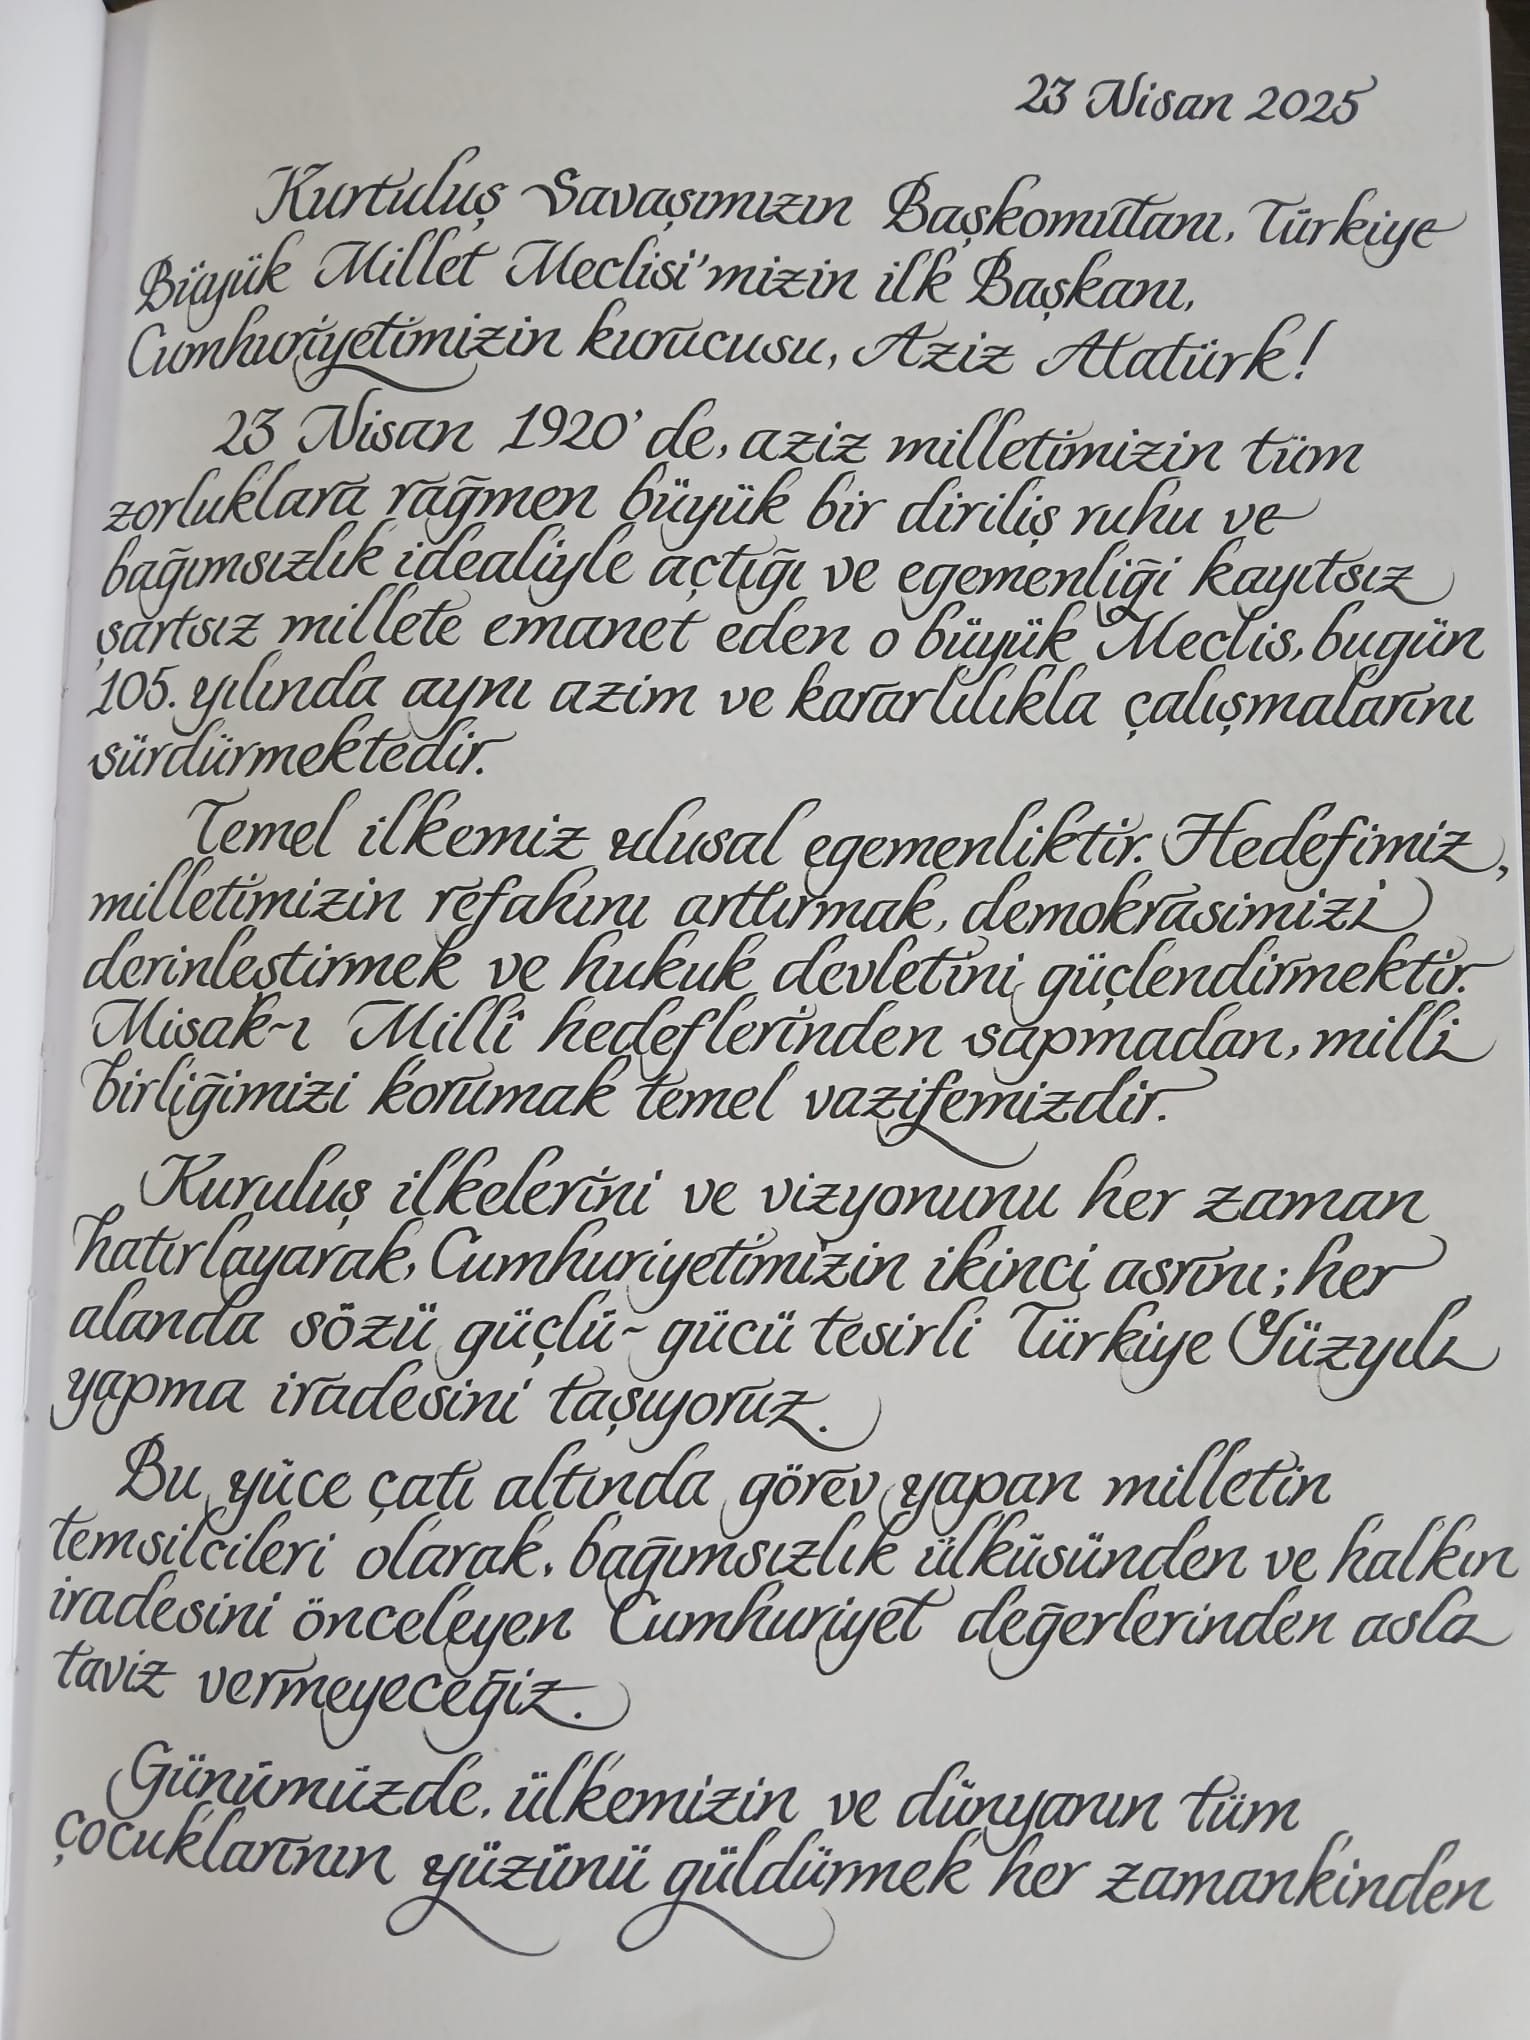 23 Nisan 2025
Kurtuluş Savaşımızın Başkomutanı, Türkiye
Büyük Millet Meclisi'mizin ilk Başkanı,
Cumhuriyetimizin kurucusu, Aziz Atatürk!
23 Nisan 1920'de, aziz milletimizin tüm
zorluklara rağmen büyük bir diriliş ruhu ve
bağımsızlık idealiyle açtığı ve egemenliği kayıtsız
şartsız millete emanet eden o büyük Meclis, bugün
105. yılında aynı azim ve kararlılıkla çalışmalarını
sürdürmektedir.
Temel ilkemiz ulusal egemenliktir. Hedefimiz,
milletimizin refahını arttırmak, demokrasimizi
derinleştirmek ve hukuk devletini güçlendirmektir.
Misak-ı Millî hedeflerinden sapmadan, milli
birliğimizi korumak temel vazifemizdir.
Kuruluş ilkelerini ve vizyonunu her zaman
hatırlayarak, Cumhuriyetimizin ikinci asrını; her
alanda sözü güçlü - gücü tesirli Türkiye Yüzyılı
yapma iradesini taşıyoruz.
Bu yüce çatı altında görev yapan milletin
temsilcileri olarak, bağımsızlık ülküsünden ve halkın
iradesini önceleyen Cumhuriyet değerlerinden asla
taviz vermeyeceğiz.
Günümüzde, ülkemizin ve dünyanın tüm
çocuklarının yüzünü güldürmek her zamankinden